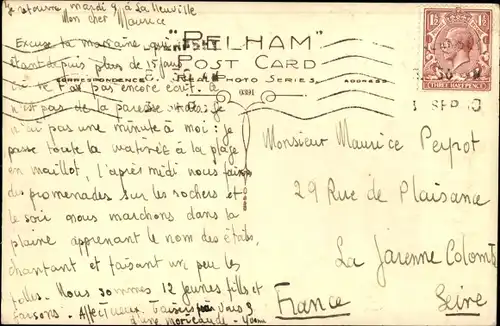 Je t'ouvre mardi 9 à La Neuville
Mon cher Maurice
Excuse ta marraine qui
étant depuis plus de 15 jours
ne t'a pas encore écrit. Ce
n'est pas de la paresse mais je
n'ai pas une minute à moi : je
passe toute la matinée à la plage
en maillot, l'après midi nous faisons
des promenades sur les rochers et
le soir nous marchons dans la
plaine apprenant le nom des états,
chantant et faisant un peu les
folles. Nous sommes 12 jeunes filles et
garçons. Affectueux baisers pour vous 3
d'une moricaude - Yvonne
"PELHAM"
POST CARD
REAL PHOTO SERIES.
CORRESPONDENCE
ADDRESS
1½ 1½
THREE HALFPENCE
SEP
Monsieur Maurice Peyrot
29 Rue de Plaisance
La Garenne Colombes
France Seine